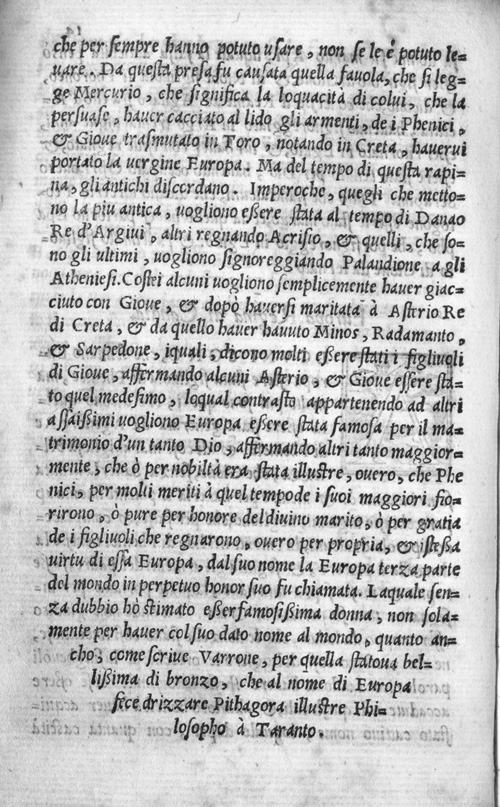 che per sempre hanno potuto usare, non se le è potuto le-
uare. Da questa presa fu causata quella fauola, che si leg-
ge Mercurio, che significa la loquacità di colui, che la
persuase, hauer cacciato al lido gli armenti, de i Phenici,
& Gioue trasmutato in Toro, notando in Creta, hauerui
portato la uergine Europa. Ma del tempo di questa rapi-
na, gli antichi discordano. Imperoche, quegli che metto-
no la piu antica, uogliono eßere stata al tempo di Danao
Re d'Argiui, altri regnando Acrisio, & quelli, che so-
no gli ultimi, uogliono signoreggiando Palandione a gli
Atheniesi. Costei alcuni uogliono semplicemente hauer giac-
ciuto con Gioue, & dopò hauersi maritata à Asterio Re
di Creta, & da quello hauer hauuto Minos, Radamanto,
& Sarpedone, iquali, dicono molti eßere stati i figliuoli
di Gioue, affermando alcuni Asterio, & Gioue essere sta-
to quel medesimo, loqual contrasto appartenendo ad altri
assaißimi uogliono Europa eßere stata famosa per il ma-
trimonio d'un tanto Dio, affermando altri tanto maggior-
mente, che ò per nobiltà era stata illustre, ouero, che Phe
nici, per molti meriti à quel tempo de i suoi maggiori fio-
rirono, ò pure per honore del diuino marito, ò per gratia
de i figliuoli che regnarono, ouero per propria, & isteßa
uirtu di essa Europa, dal suo nome la Europa terza parte
del mondo in perpetuo honor suo fu chiamata. Laquale sen-
za dubbio hò stimato eßer famosißima donna, non sola-
mente per hauer col suo dato nome al mondo, quanto an-
cho, come scriue Varrone, per quella statoua bel-
lißima di bronzo, che al nome di Europa
fece drizzare Pithagora illustre Phi-
losopho à Taranto.